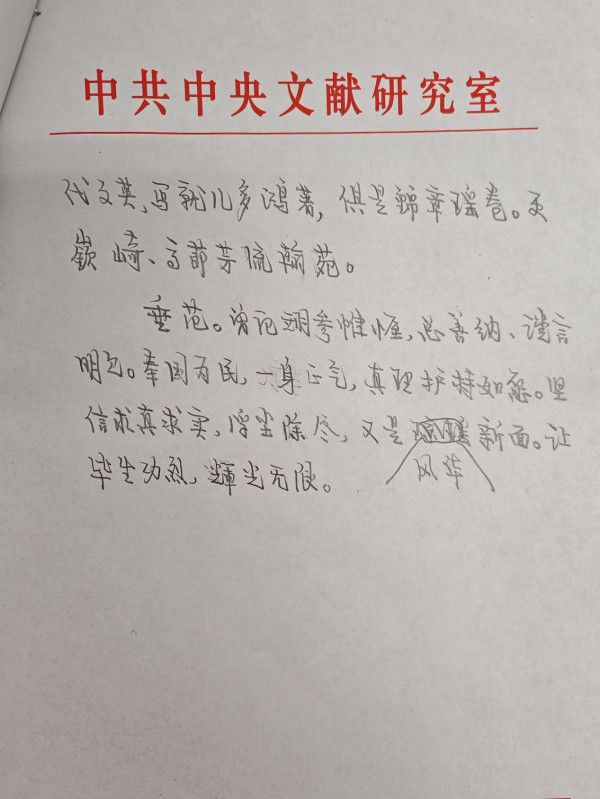 中共中央文献研究室
代文英,写就几多鸿著,俱是锦章瑶卷。更
嵚崎、高节芳流翰苑。
垂范。曾记翊参帷幄,总善纳、谠言
明已。奉国为民,一身正气,真理护持如愿。坚
信求真求实,浮尘除尽,又是 新面。让
风华
毕生功烈,辉光无限。